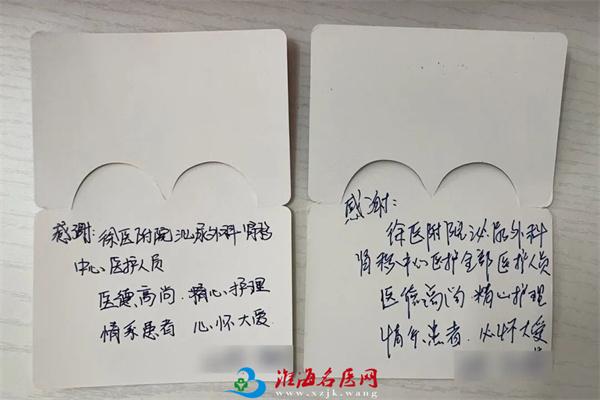 感谢:徐医附院泌尿外科肾移
中心医护人员
医德高尚.精心护理
情系患者 心怀大爱.
感谢:
徐医附院泌尿外科
肾移中心医护全部医护人员
医德高尚 精心护理
情系患者.心怀大爱
淮海名医网
www.xzjk.wang